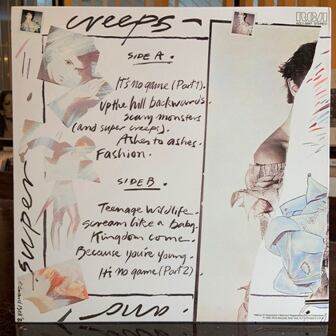 creeps-
RCA
SIDE A.
It's no game (Part 1).
Up the hill backwards.
scary monsters
(and super creeps).
Ashes to ashes.
Fashion.
SIDE B.
Teenage Wildlife.
scream like a Baby.
Kingdom come.
Because you're young.
It's no game (Part 2)
super
and